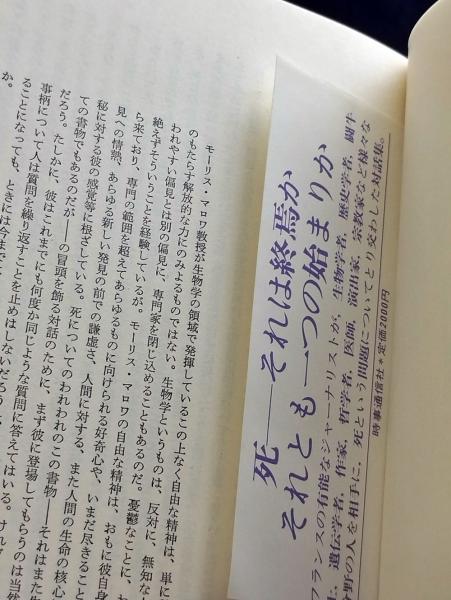 モーリス・マロワ教授が生物学の領域で発揮しているこの上なく自由な精神は、単に
のもたらす解放的な力にのみよるものではない。生物学というものは、反対に、無知な
われやすい偏見とは別の偏見に、専門家を閉じ込めることもあるのだ。憂鬱なことに、お
絶えずそういうことを経験しているが。モーリス・マロワの自由な精神は、おもに彼自身
ら来ており、専門の範囲を超えてあらゆるものに向けられる好奇心や、いまだ尽きること
見への情熱、あらゆる新しい発見の前での謙虚さ、人間に対する、また人間の生命の核心
秘に対する彼の感覚等に根ざしている。死についてのわれわれのこの書物――それはまた生
ての書物でもあるのだが――の冒頭を飾る対話のために、まず彼に登場してもらうのは当然
だろう。たしかに、彼はこれまでにも何度か同じような質問に答えてはいる。けれど
事柄について人は質問を繰り返すことを止めはしないだろう
ることになっても、ときには今まで
か。
死――それは終焉か
それとも一つの始まりか
フランスの有能なジャーナリストが、生物学者、歴史学者、闘牛
士、遺伝学者、作家、哲学者、医師、演出家、宗教家など様々な
分野の人を相手に、死という問題についてとり交わした対話集。
時事通信社*定価2000円